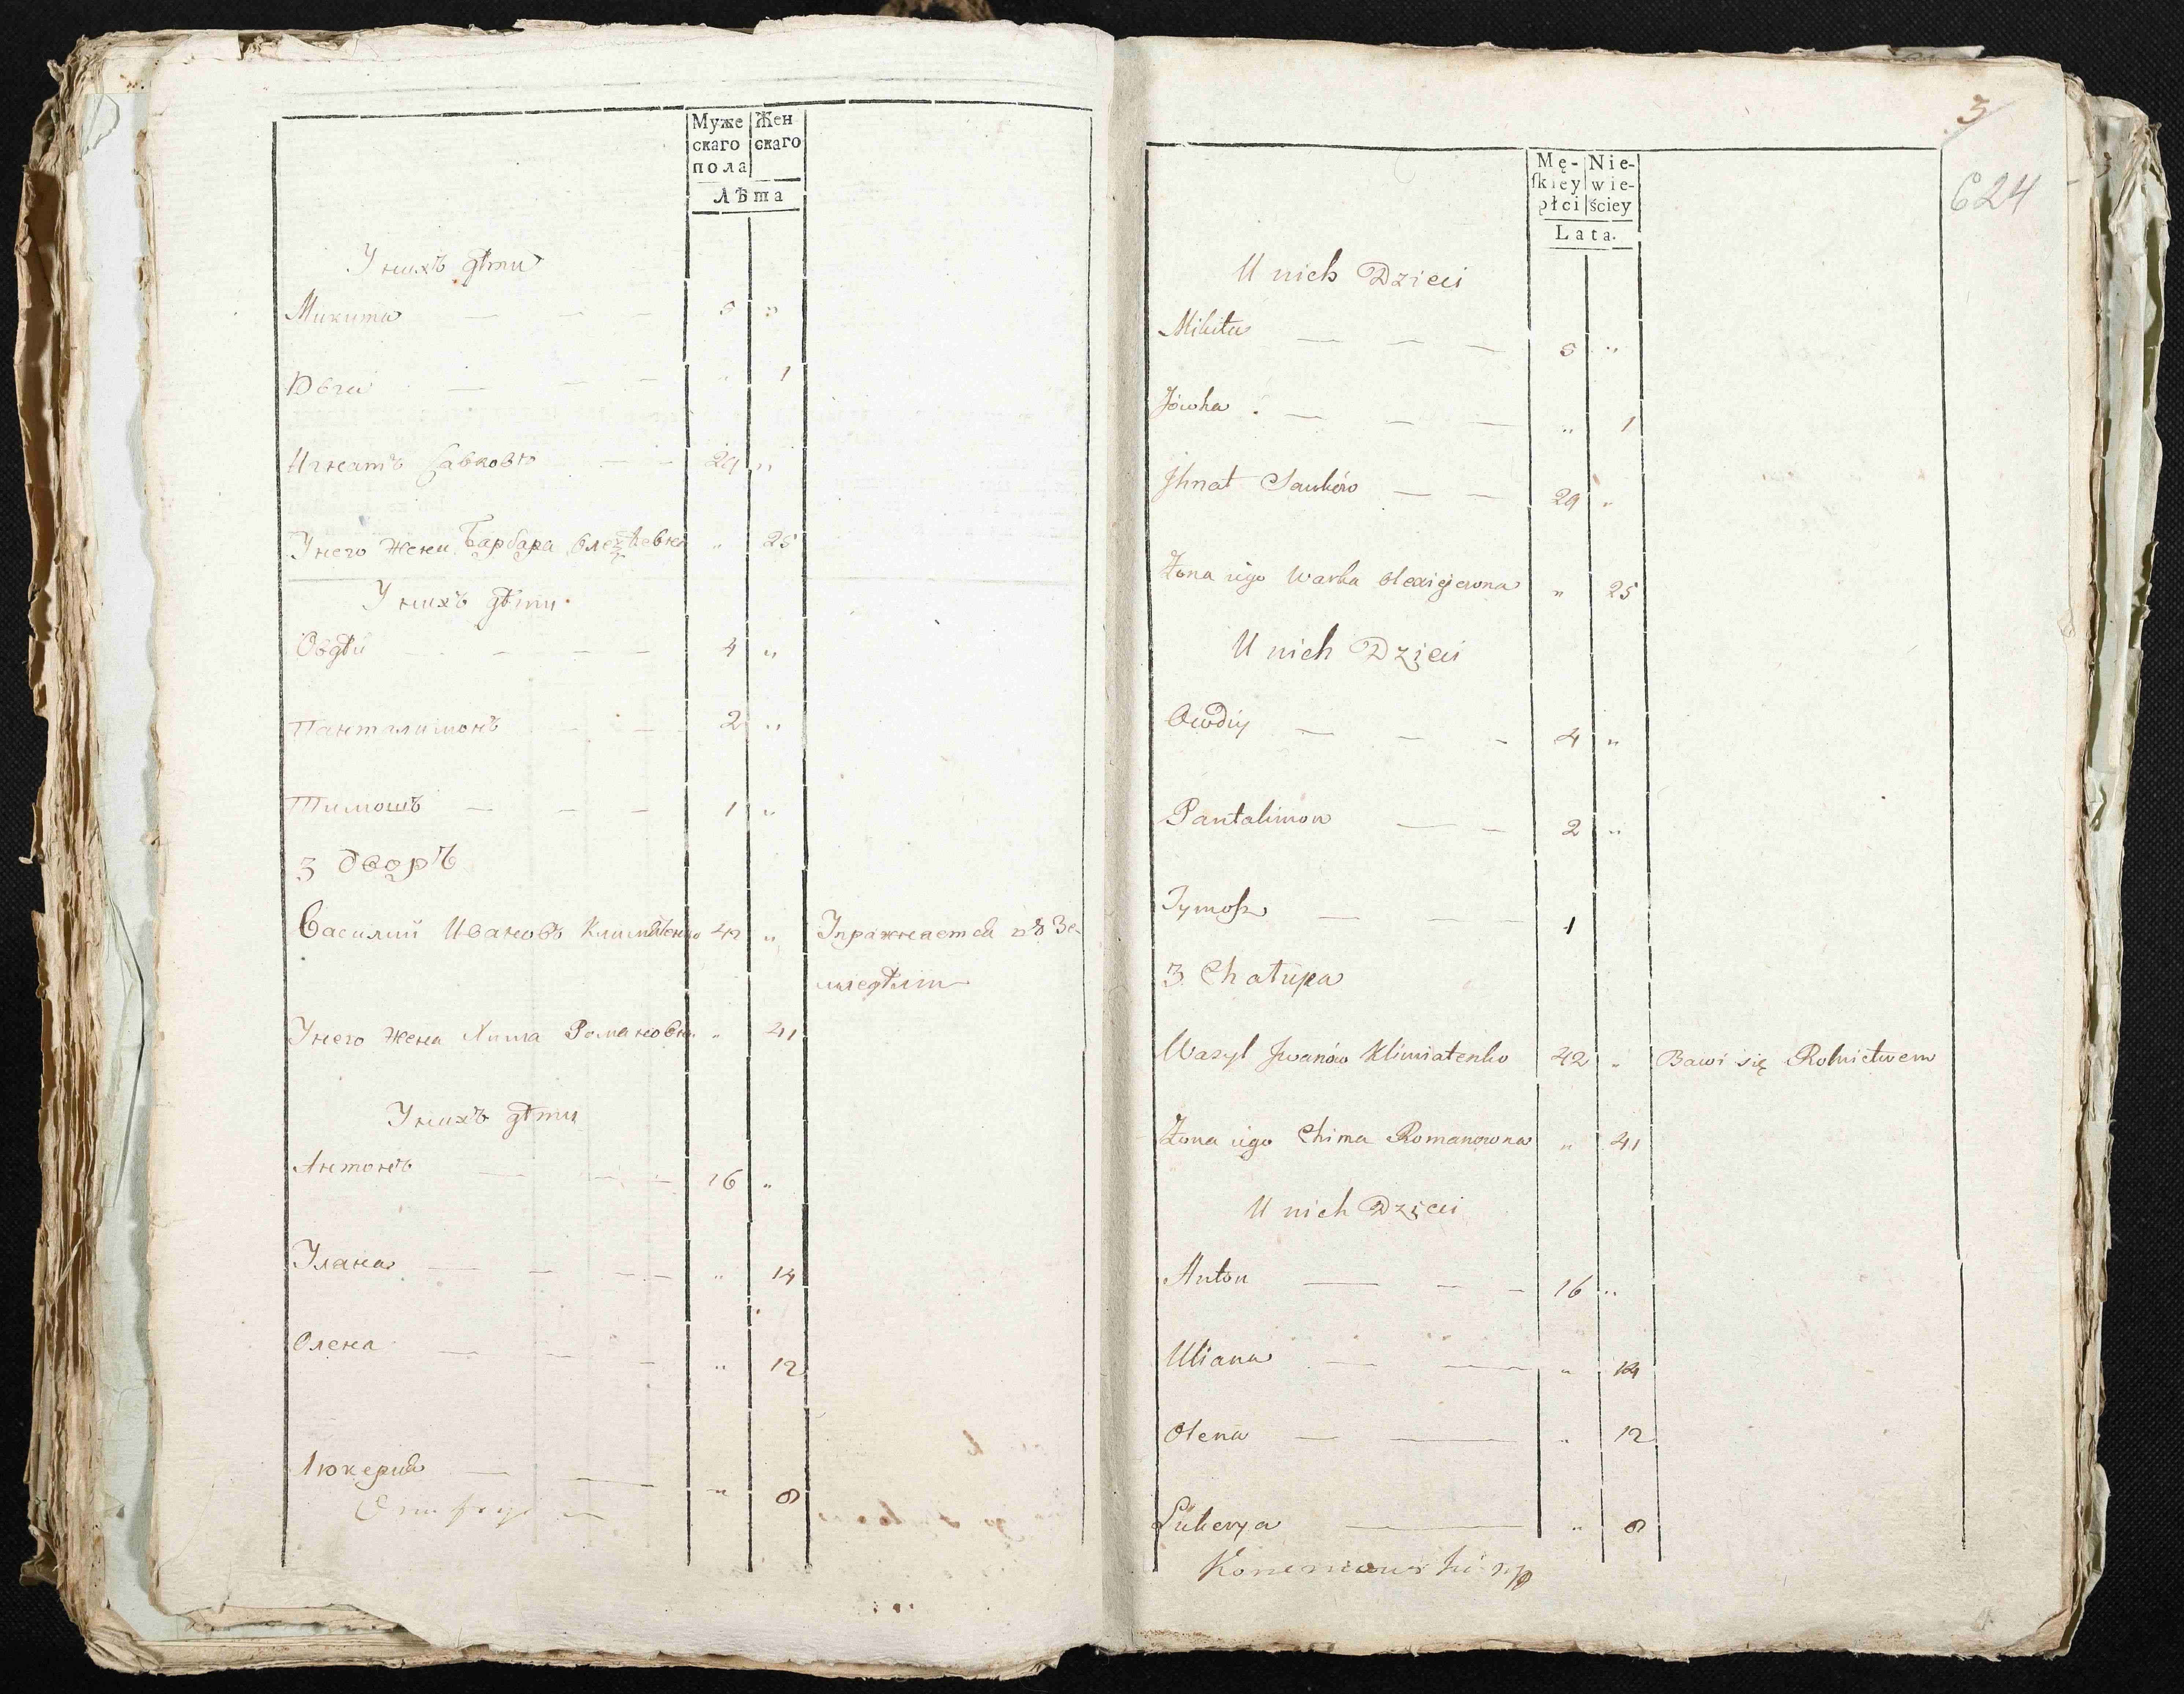 Муже Жен
скаго скаго
пола
Лѣта
У нихъ дѣти
Микита — — — 5 "
Ювга — — — " 1
Игнатъ Савковъ — — 29 "
Унего жена Барбара Олексѣевна " 25
У нихъ дѣти
Овдѣй — — — 4 "
Панталимонъ — — 2 "
Тимошъ — — — 1 "
3 дворъ
Василий Ивановъ Климятенко 42 " Упражняется въ Зе-
мледѣлии
Унего жена Хима Романовна " 41
У нихъ дѣти
Антонъ — — — 16 "
Улана — — — " 14
Олена — — — " 12
Люкерия — — " 8
3
624
Mę- Nie-
skiey wie-
płci ściey
Lata.
U nich Dzieci
Mikita — — — 5 "
Jówha — — — " 1
Jhnat Sauków — — 29 "
Żona iego Warka Olexiejewna " 25
U nich Dzieci
Owdiy — — — 4 "
Pantalimon — — 2 "
Tymosz — — — 1
3 Chałupa
Wasyl Jwanów Klimiatenko 42 " Bawi się Rolnictwem
Żona iego Chima Romanowna " 41
U nich Dzieci
Anton — — — 16 "
Uliana — — " 14
Olena — — " 12
Łukerya — " 8